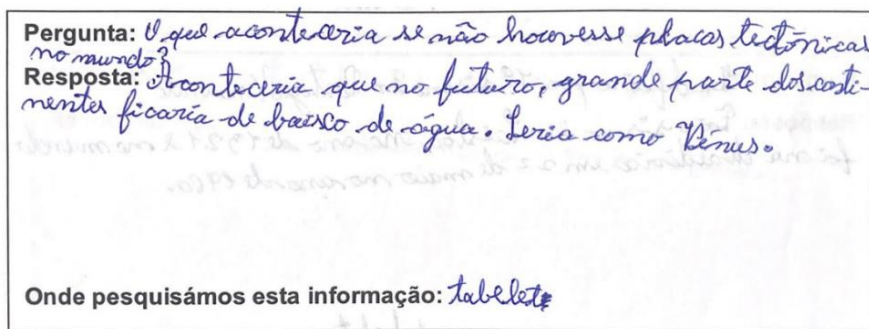 Pergunta: O que aconteceria se não houvesse placas tectónicas
no mundo?
Resposta: Aconteceria que no futuro, grande parte dos conti-
nentes ficaria de baixo de água. Seria como Vénus.
Onde pesquisámos esta informação: tabelete